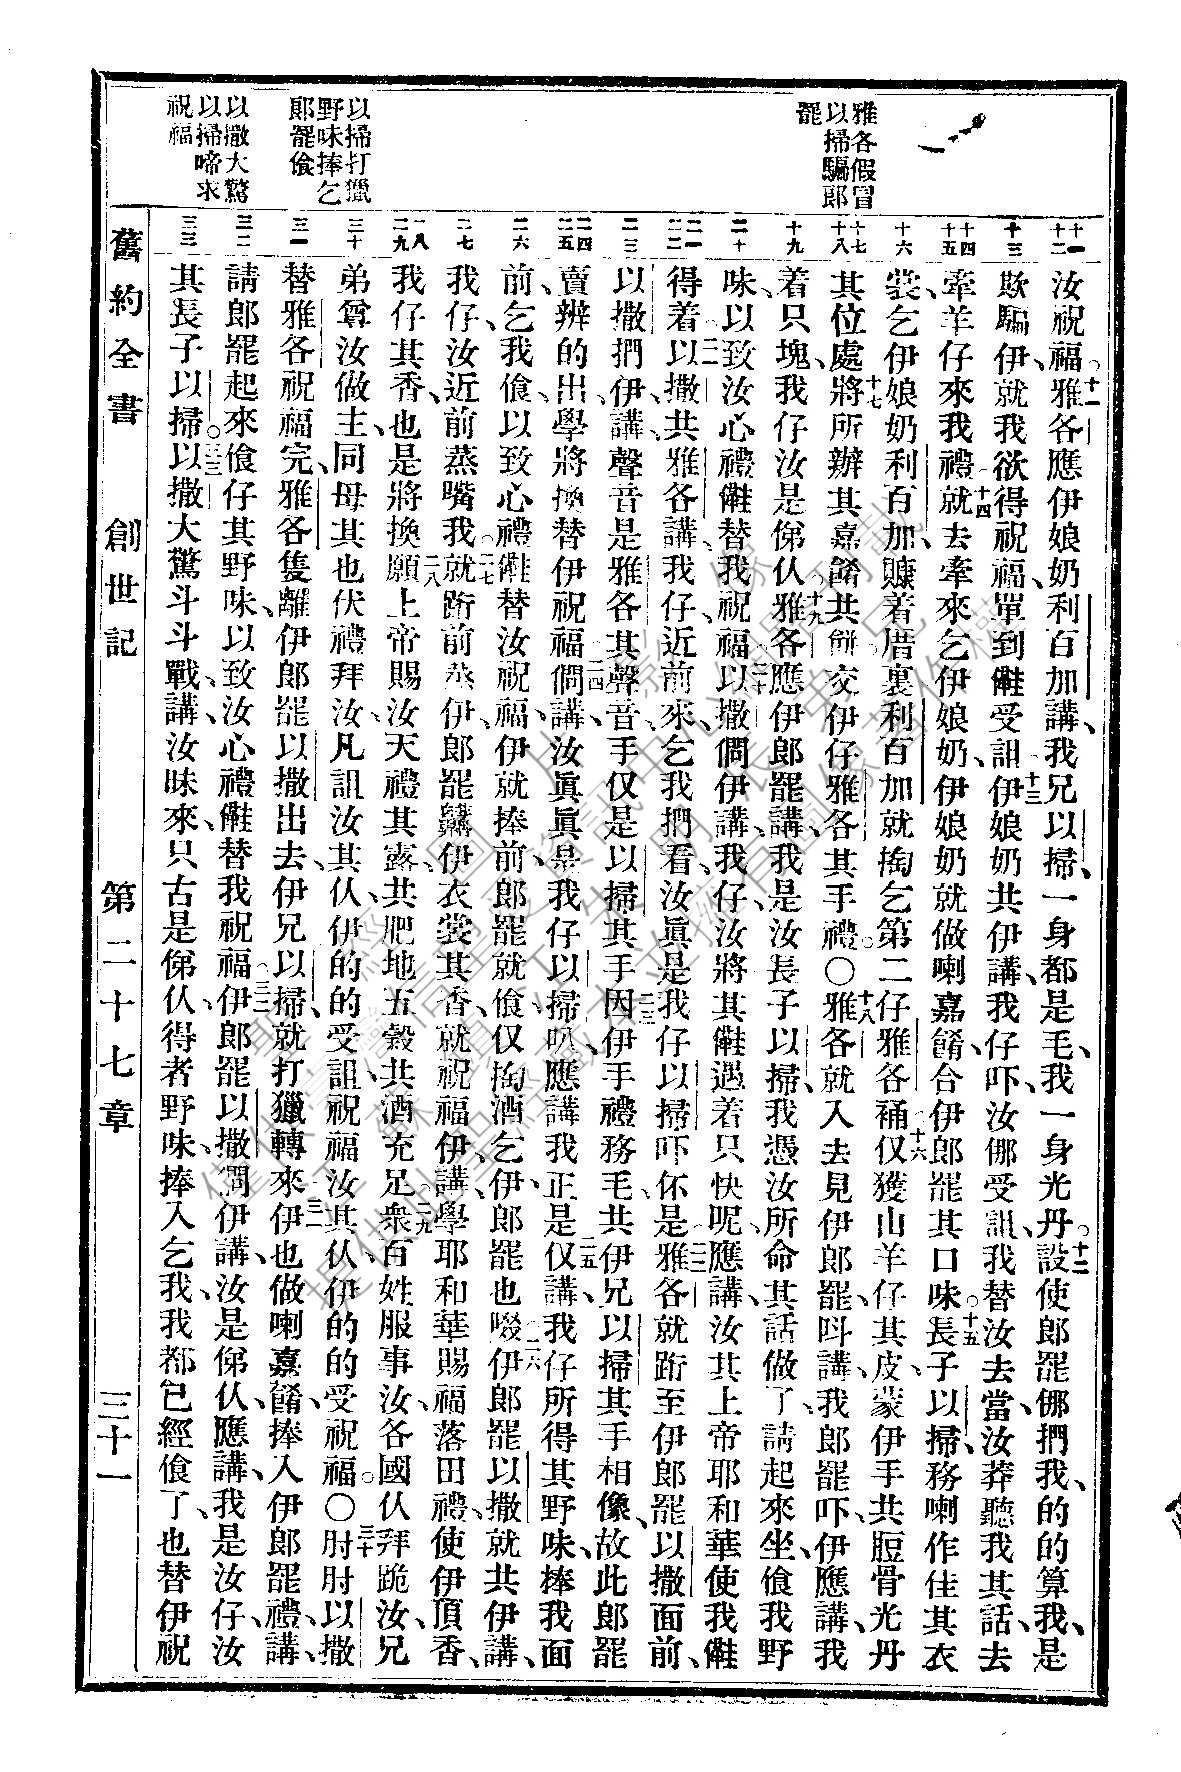 雅各假冒
以掃騙郎
罷
以掃打獵
野味捧乞
郎罷飧
以撒大驚
以掃啼求
祝福
汝祝福○十一雅各應伊娘奶利百加講、我兄以掃、一身都是毛、我一身光丹○十二設使郎罷倗捫我、的的算我、是
欺騙伊、就我欲得祝福、單到𣍐受詛○十三伊娘奶共伊講、我仔吓、汝倗受詛、我替汝去當、汝莽聽我其話、去
牽羊仔來我禮○十四就去牽來乞伊娘奶、伊娘奶就做喇嘉餚、合伊郎罷其口味○十五長子以掃、務喇作佳其衣
裳、乞伊娘奶利百加、賺着厝裏、利百加就掏乞第二仔雅各𥙷○十六仅獲山羊仔其皮、蒙伊手共脰骨光丹
其位處、十七將所辦其嘉餚共餅交伊仔雅各其手禮○十八雅各就入去見伊郎罷、呌講、我郎罷吓、伊應講、我
着只塊、我仔汝是俤仈○十九雅各應伊郎罷講、我是汝長子以掃、我憑汝所命其話做了、請起來坐、飧我野
味、以致汝心禮𣍐替我祝福○二十以撒僩伊講、我仔、汝將其𣍐遇着只快呢、應講、汝其上帝耶和華使我𣍐
得着○二一以撒共雅各講、我仔、近前來、乞我捫看、汝眞是我仔以掃吓伓是○二二雅各就跻至伊郎罷以撒面前、
以撒捫伊、講、聲音是雅各其聲音、手仅是以掃其手○二三因伊手禮務毛、共伊兄以掃其手相像、故此郎罷
賣辨的出、學將換替伊祝福○二四僩講、汝眞眞是我仔以掃叭、應講、我正是○二五仅講、我仔所得其野味、捧我面
前、乞我飧、以致心禮𣍐替汝祝福、伊就捧前、郎罷就飧、仅掏酒乞伊、郎罷也啜○二六伊郎罷以撒就共伊講、
我仔、汝近前蒸嘴我○二七就跻前蒸伊、郎罷齅伊衣裳其香、就祝福伊、講、學耶和華賜福落田禮、使伊頂香、
我仔其香、也是將換○二八願上帝賜汝天禮其露、共肥地五穀共酒充足○二九衆百姓服事汝、各國仈拜跪汝、兄
弟尊汝做主、同母其也伏禮拜汝、凡詛汝其仈、伊的的受詛、祝福汝其仈、伊的的受祝福○〇三十肘肘以撒
替雅各祝福完、雅各隻離伊郎罷以撒出去、伊兄以掃就打獵轉來○三一伊也做喇嘉餚、捧入伊郎罷禮、講、
請郎罷起來飧仔其野味、以致汝心禮𣍐替我祝福○三二伊郎罷以撒僩伊講、汝是俤仈、應講、我是汝仔、汝
其長子以掃○三三以撒大驚斗斗戰、講、汝昧來、只古是俤仈、得者野味、捧入乞我、我都已經飧了、也替伊祝
舊約全書　創世記　第二十七章　三十一